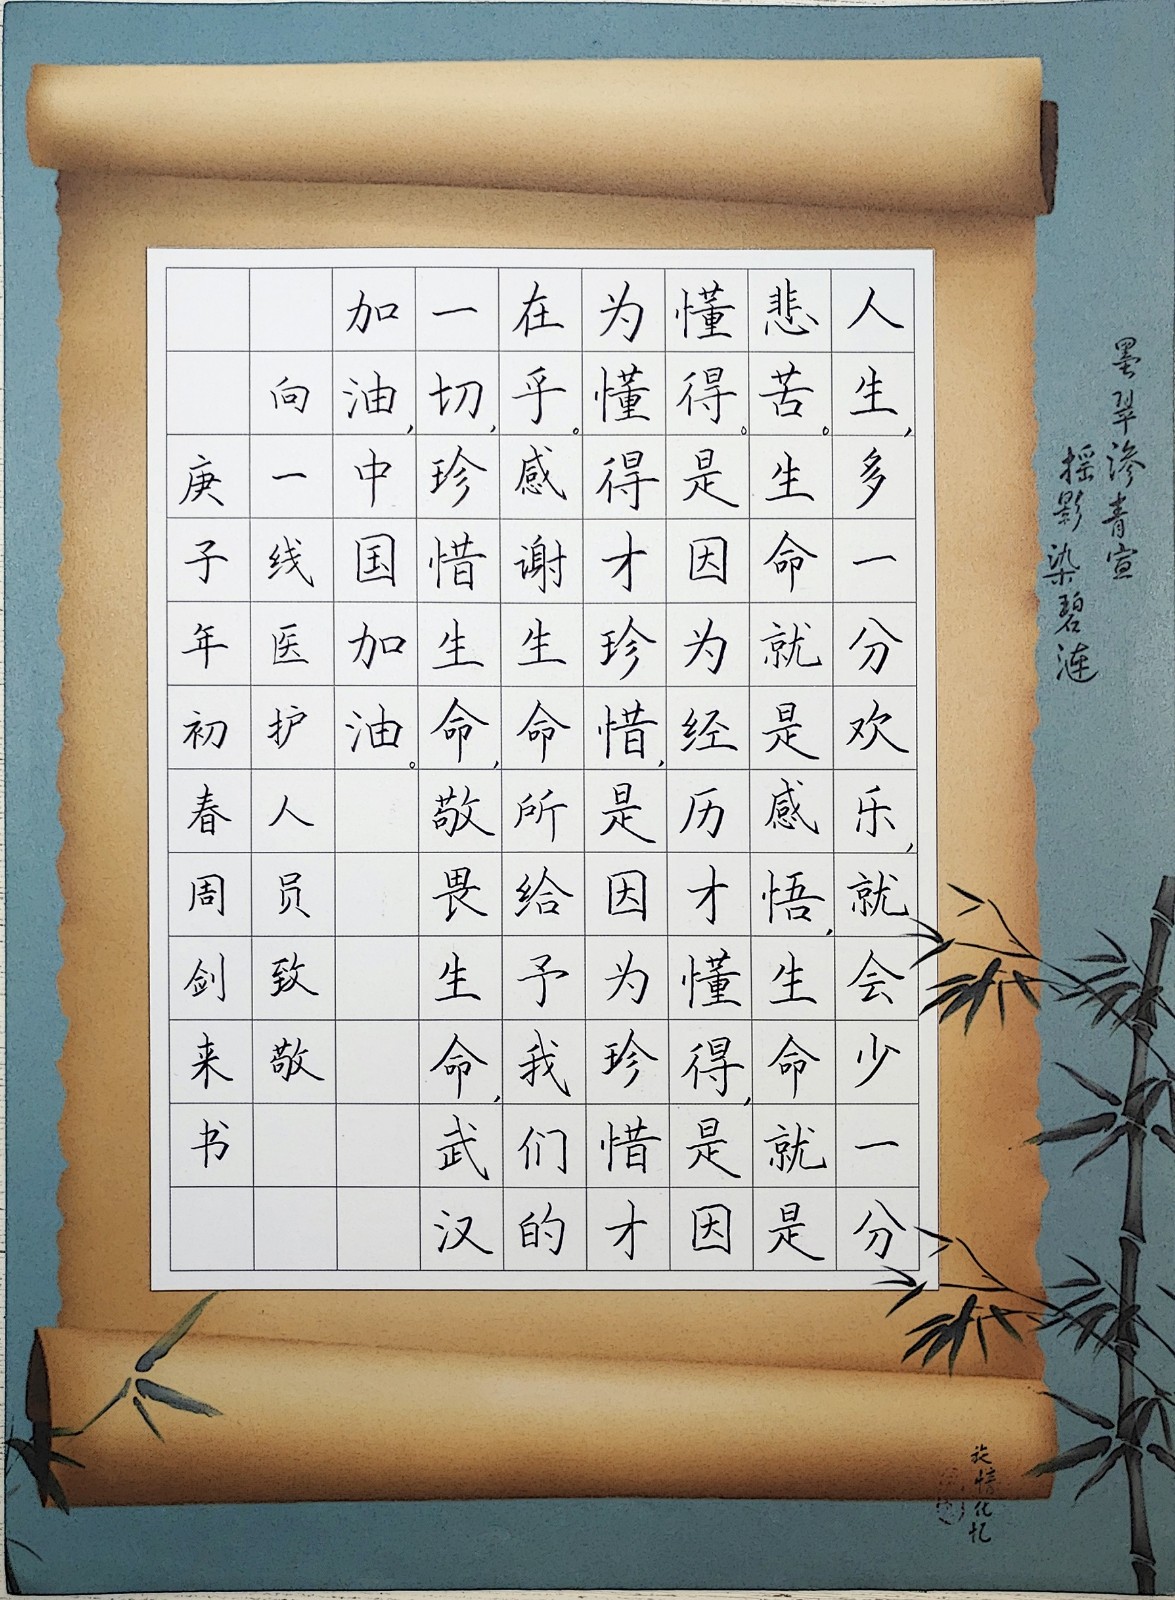 人生，多一分欢乐，就会少一分
悲苦。生命就是感悟，生命就是
懂得。是因为经历才懂得，是因
为懂得才珍惜，是因为珍惜才
在乎。感谢生命所给予我们的
一切，珍惜生命，敬畏生命，武汉
加油，中国加油。
向一线医护人员致敬
庚子年初春周剑来书
墨翠渗青宣
摇影染碧涟